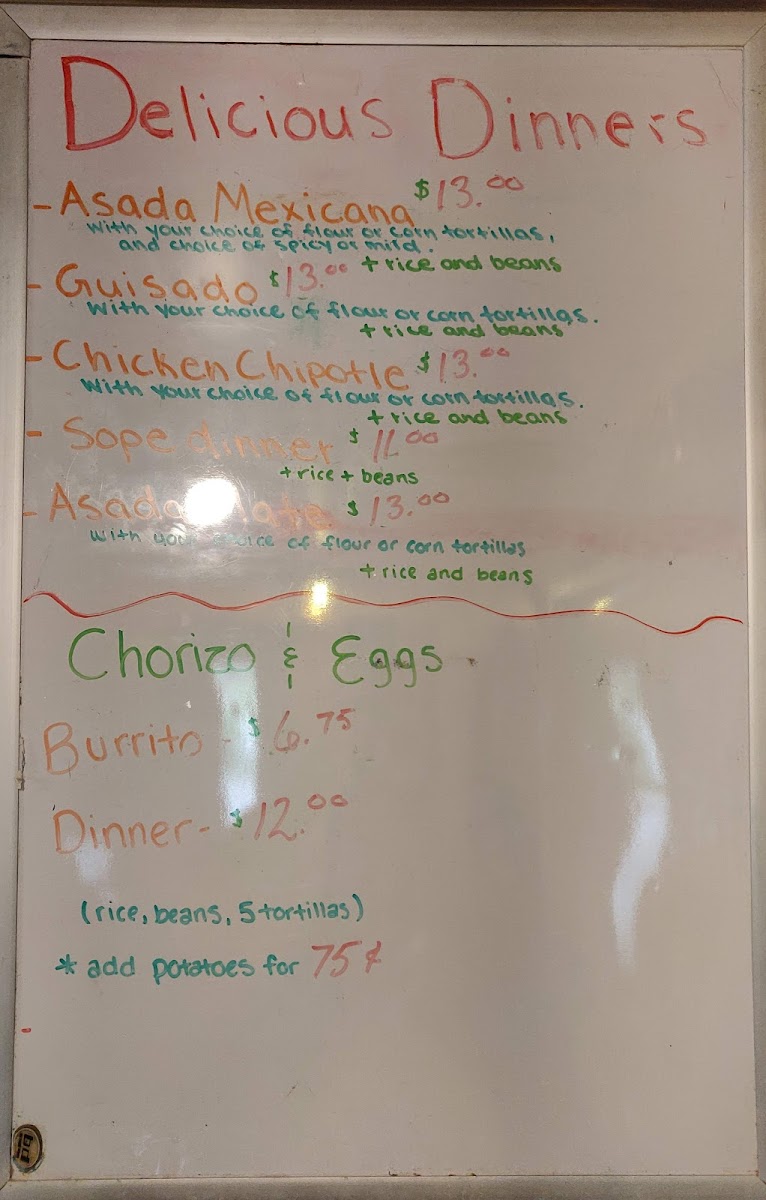 Delicious Dinners
- Asada Mexicana $13.00
with your choice of flour or corn tortillas,
and choice of spicy or mild.
+ rice and beans
- Guisado $13.00
with your choice of flour or corn tortillas.
+ rice and beans
- Chicken Chipotle $13.00
with your choice of flour or corn tortillas.
+ rice and beans
- Sope dinner $11.00
+ rice + beans
- Asada Plate $13.00
with your choice of flour or corn tortillas
+ rice and beans
Chorizo & Eggs
Burrito - $6.75
Dinner - $12.00
(rice, beans, 5 tortillas)
* add potatoes for 75¢